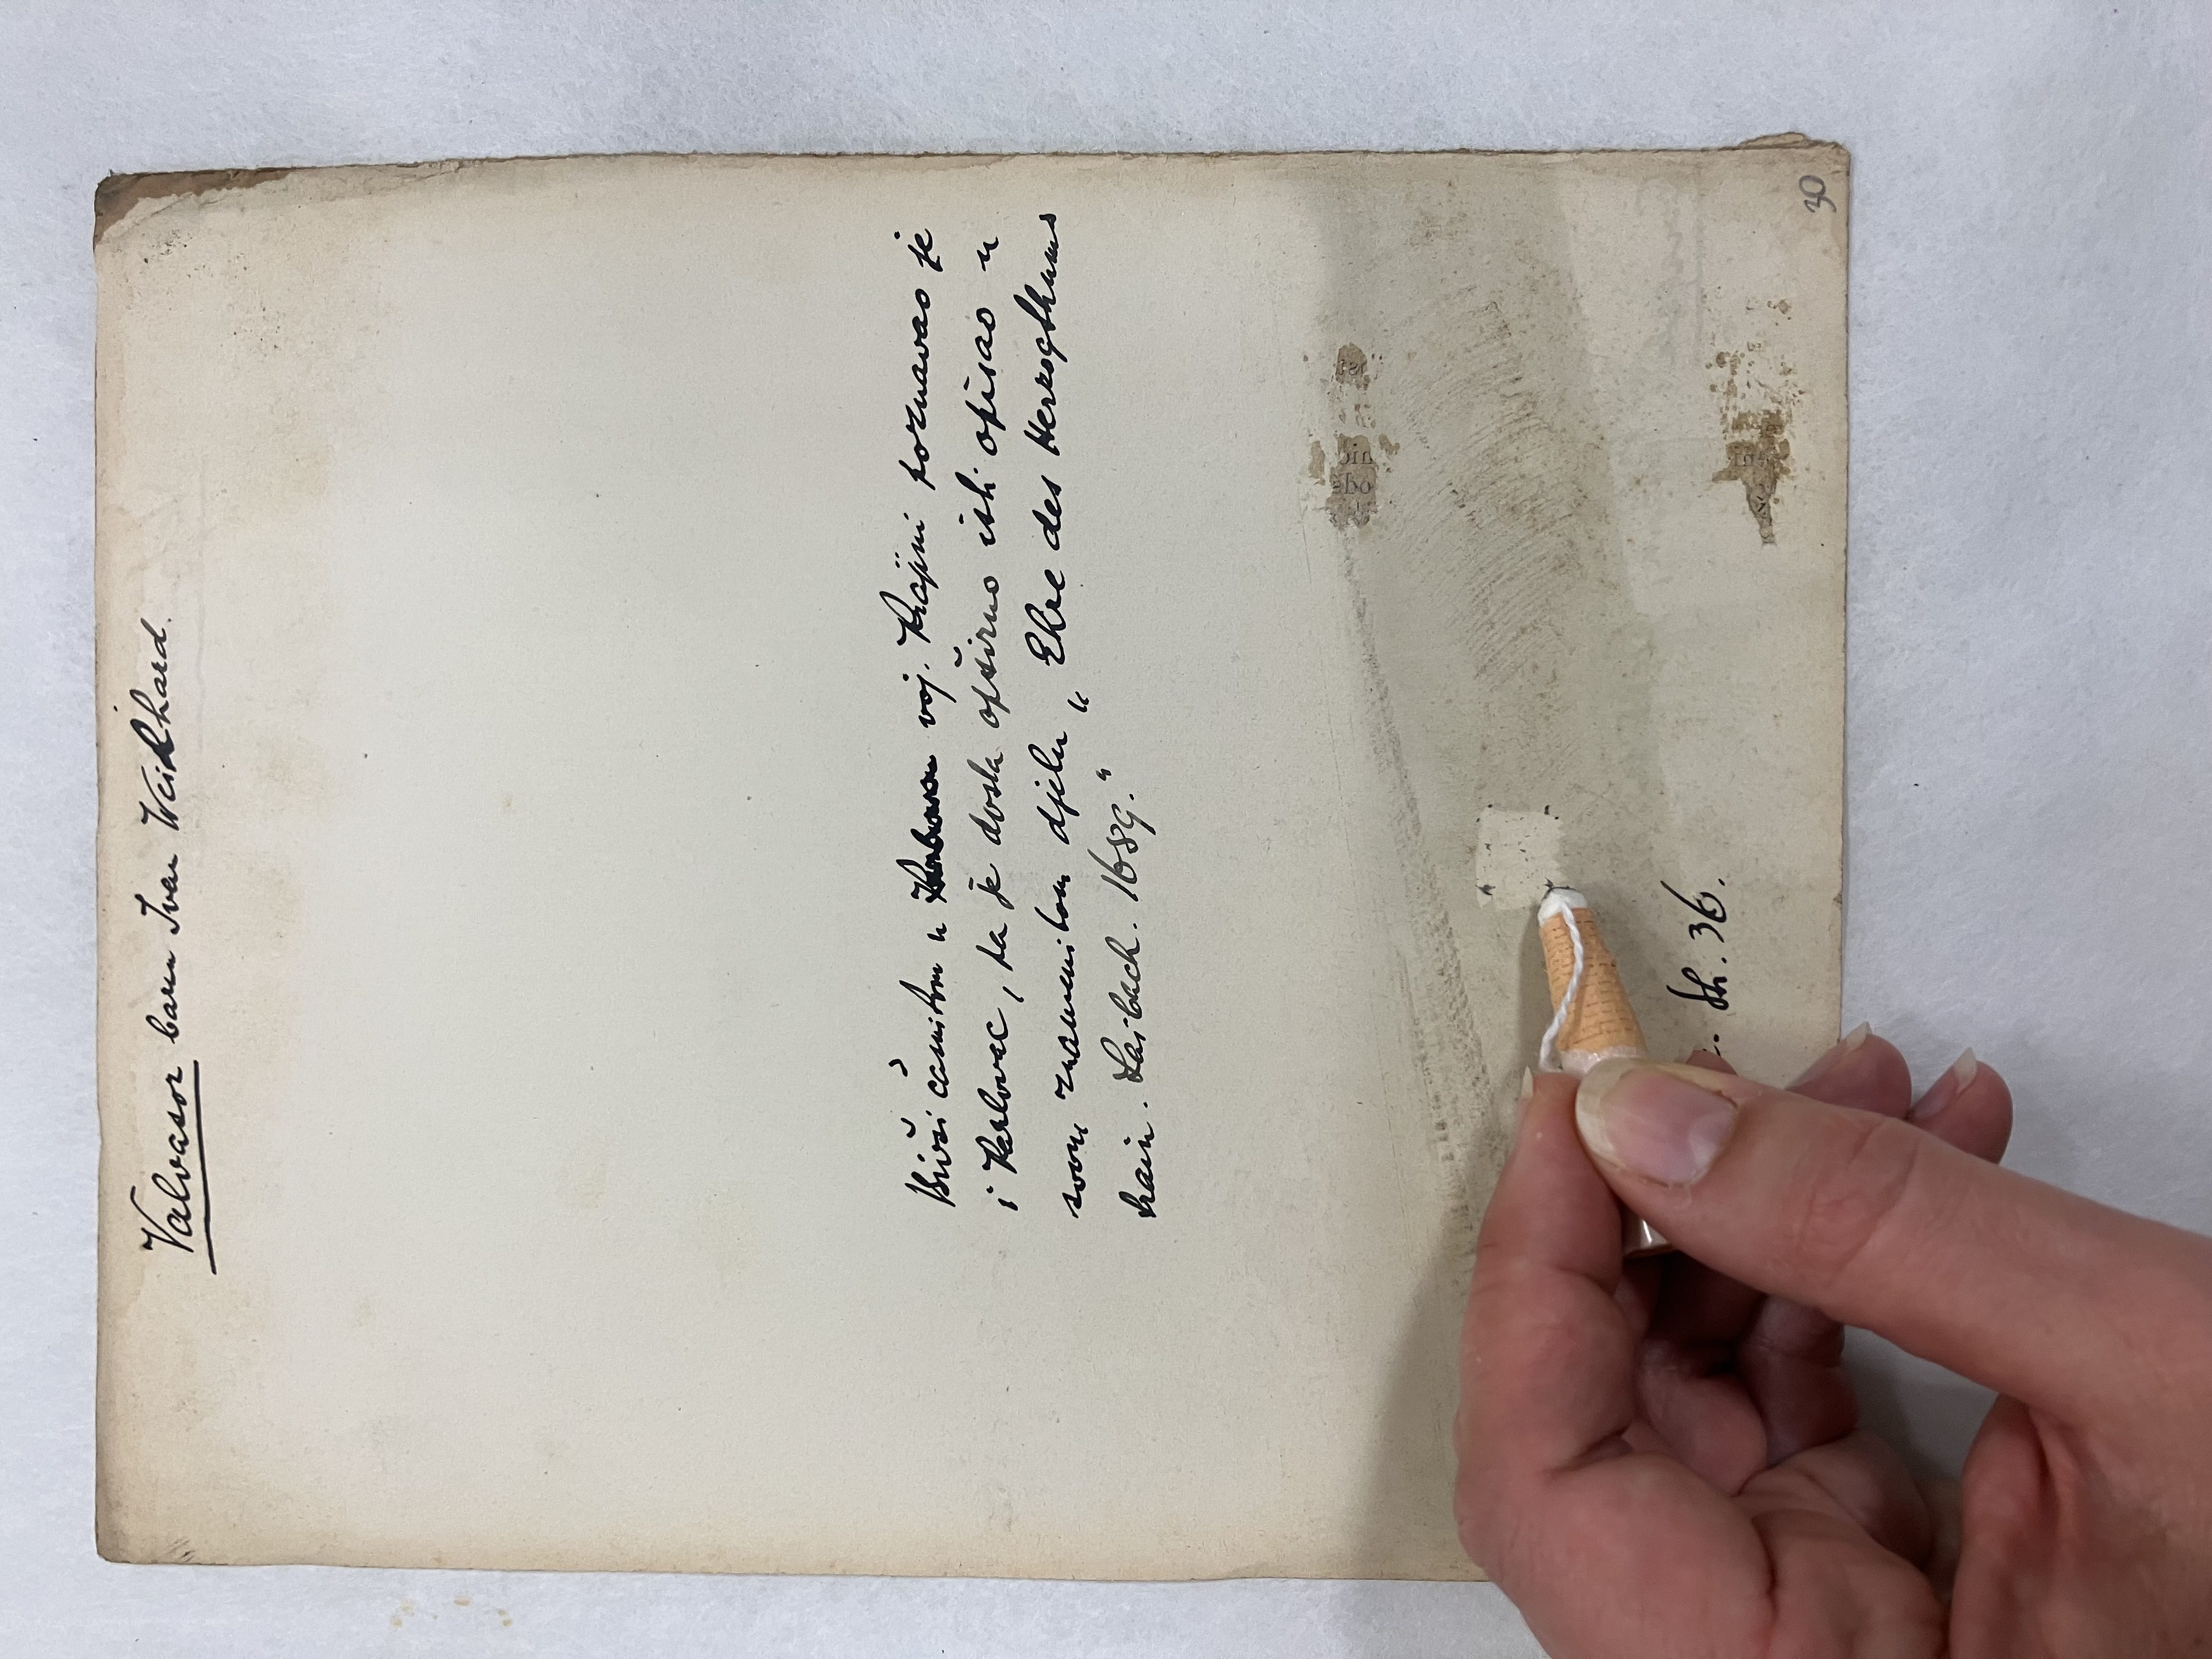 Valvasor barun Ivan Weikhard.
Bivši časnikom u voj. Krajini poznavao je
i Karlovac, pa je dosta opširno isti opisao u
svom znamenitom djelu „Ehre des Herzogthums
Krain. Laibach. 1689.“
St. 36.
30